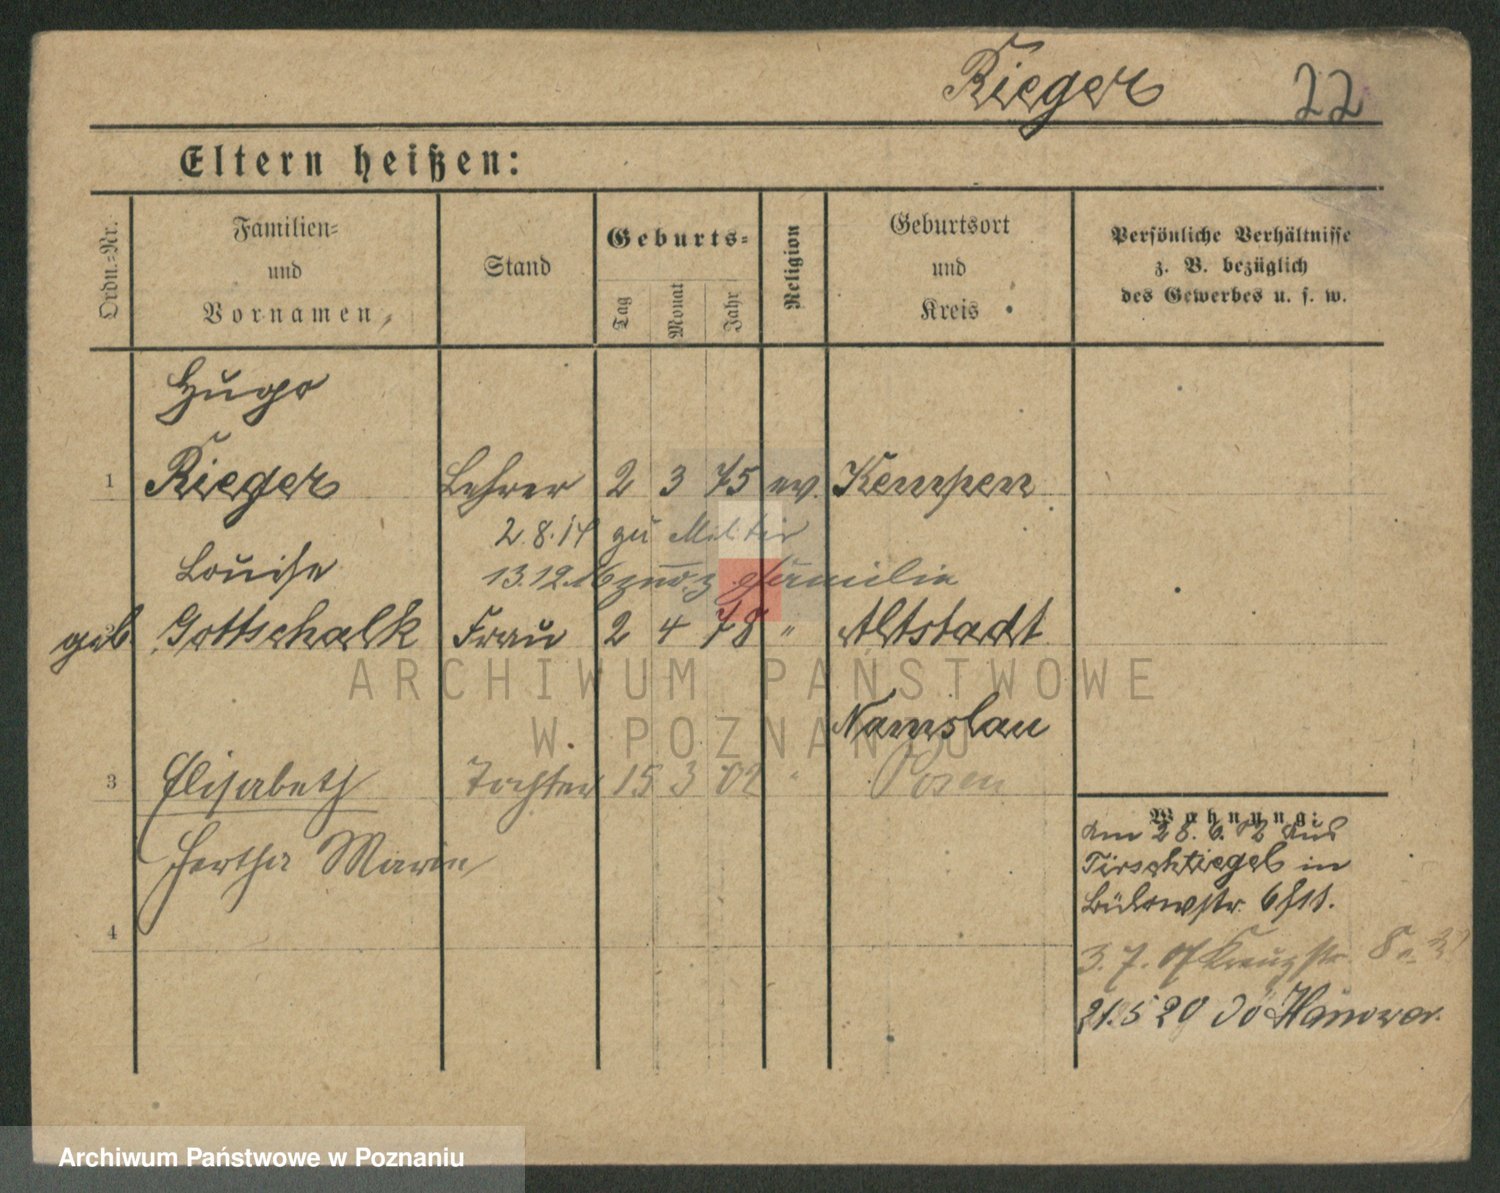 Rieger 22
Eltern heißen:
Ordn.-Nr.
Familien-
und
Vornamen
Stand
Geburts-
Tag
Monat
Jahr
Religion
Geburtsort
und
Kreis
Persönliche Verhältnisse
z. B. bezüglich
des Gewerbes u. s. w.
Hugo
1 Rieger Lehrer 2 3 75 ev. Kempen
2.8.14 zu Militär
Louise 13.12.16 Familie
geb. Gottschalk Frau 2 4 78 " Altstadt
ARCHIWUM PAŃSTWOWE
Namslau
W POZNANIU
3 Elisabeth Tochter 15 3 02 " Posen
Wohnung:
Am 28. 6. 02 aus
Hertha Marie Tirschtiegel in
Bülowstr. 6
4
3. 7. 07 Kreuzstr.
21.5 20 Hannover.
Archiwum Państwowe w Poznaniu